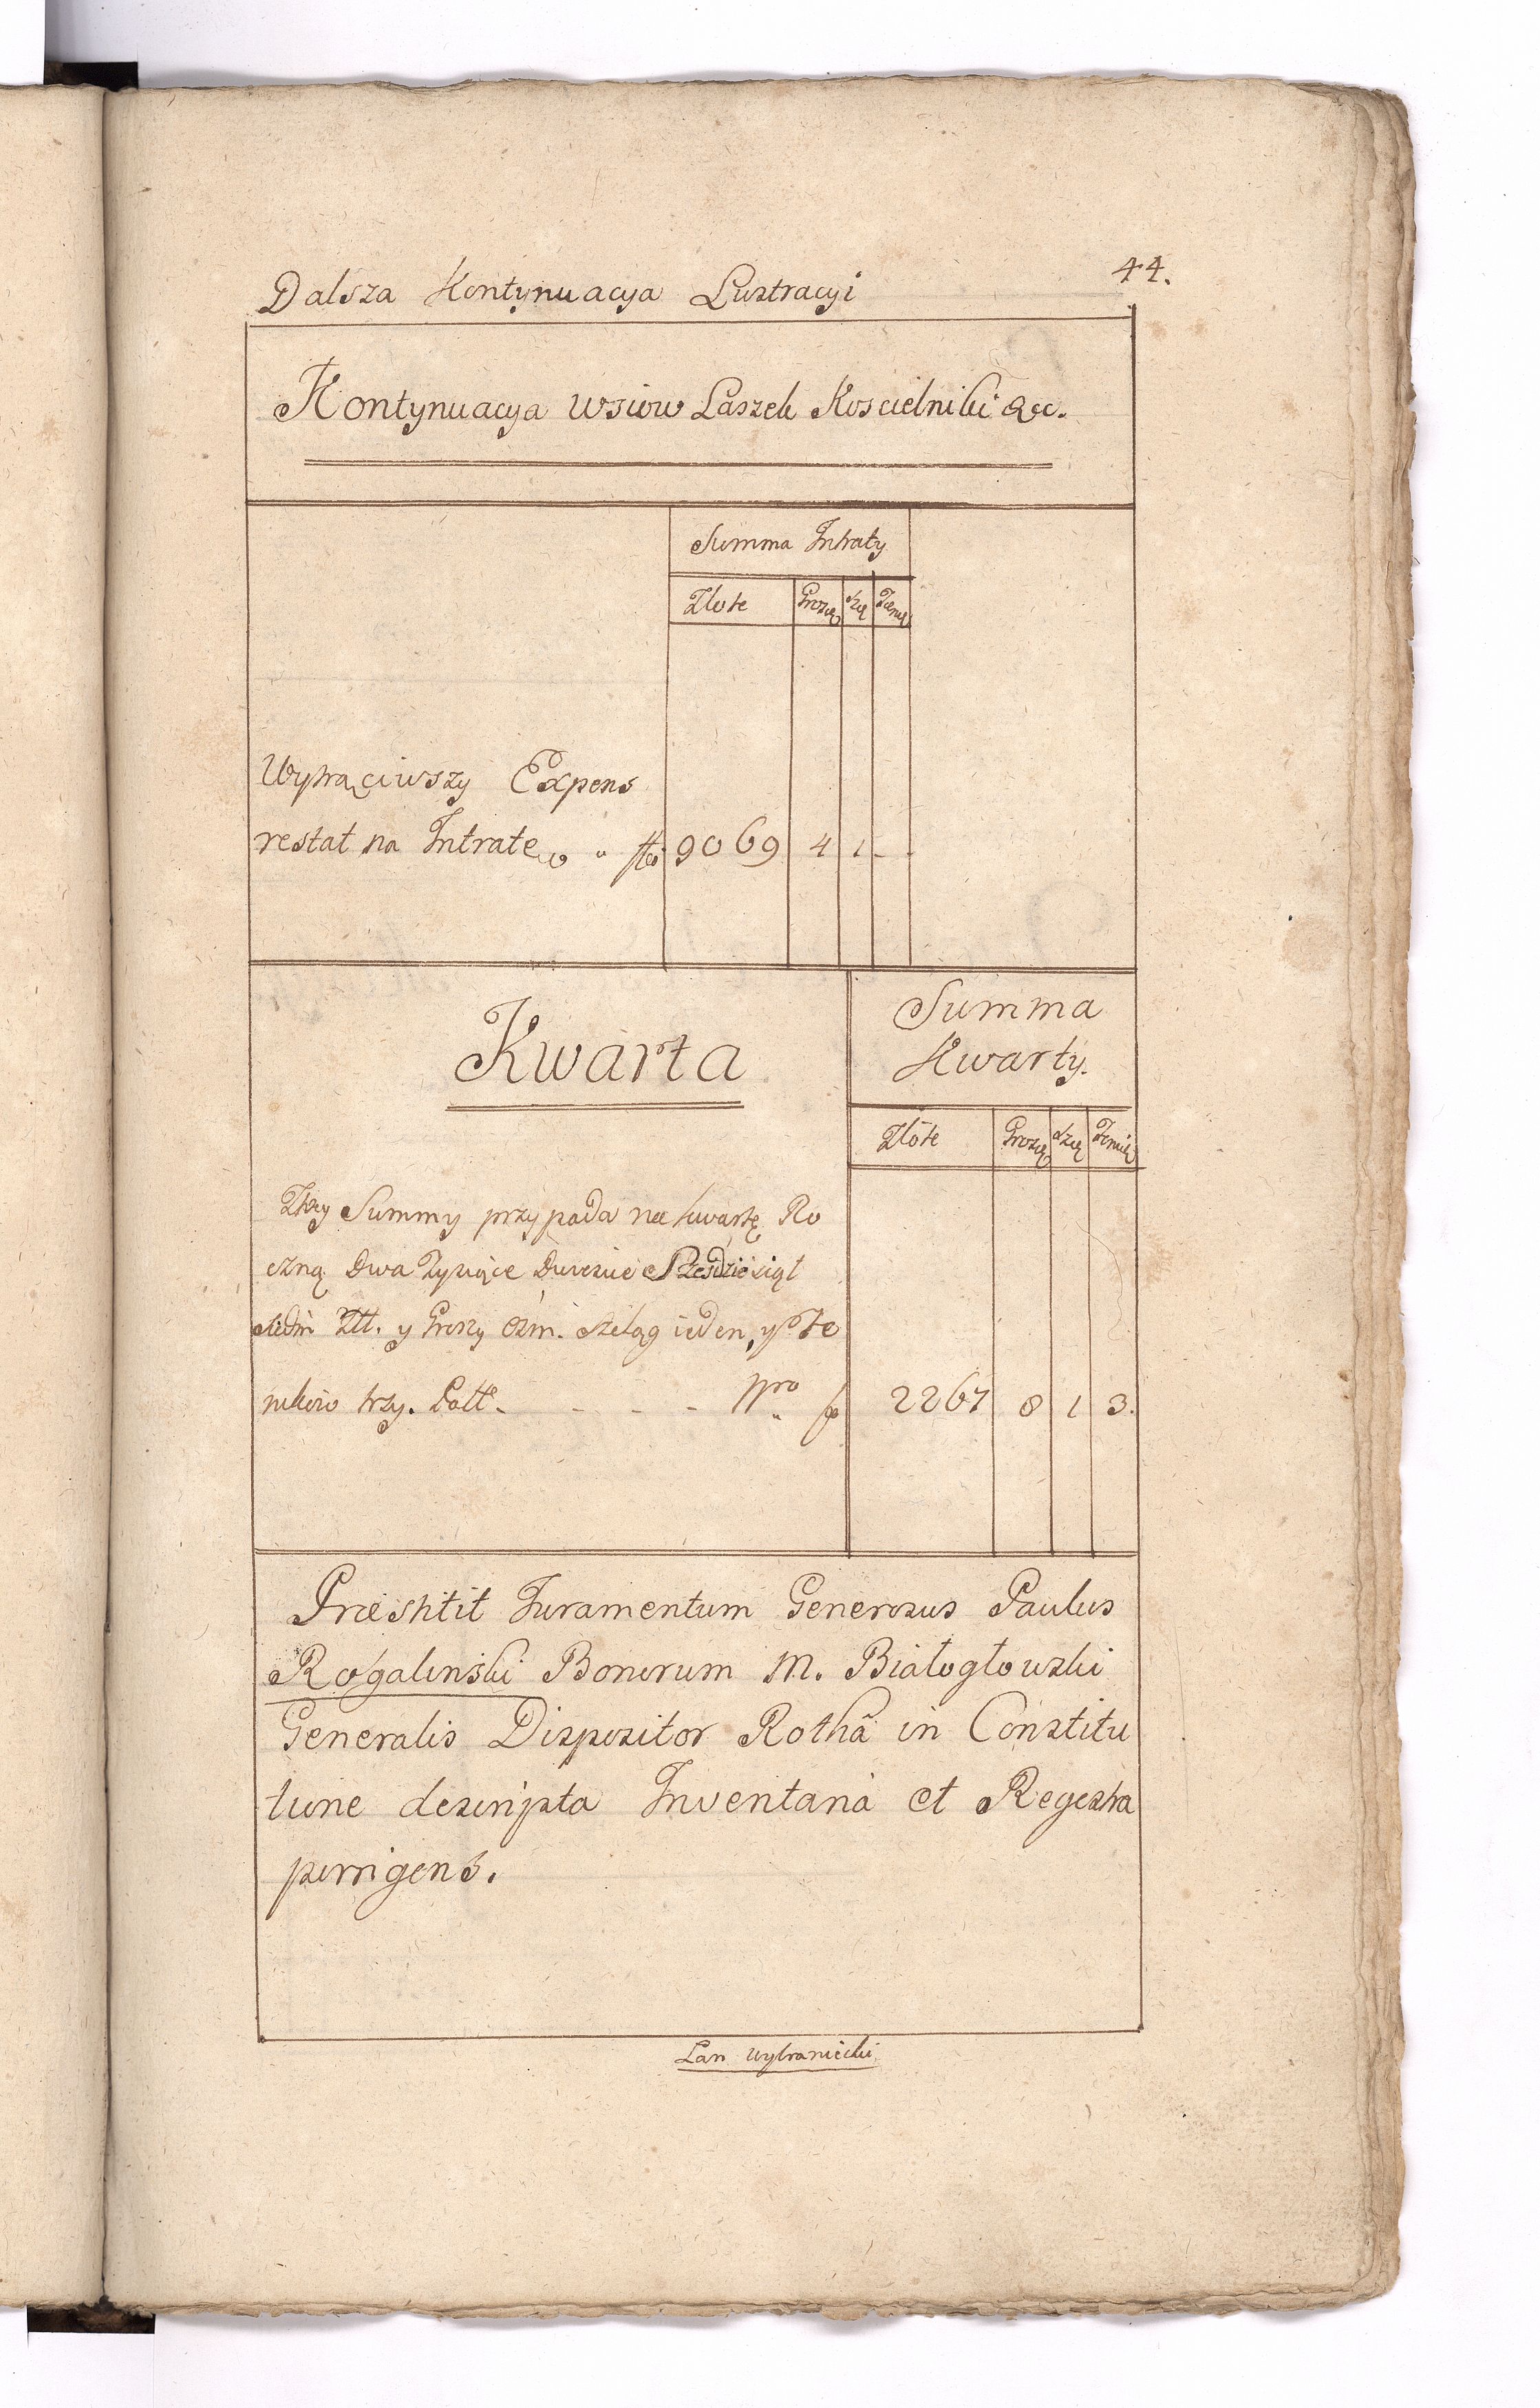 Dalsza Kontynuacya Lustracyi
44.
Kontynuacya wsiow Laszek Koscielniki &c.
Summa Intraty
Złote Groszę Szę Fenię
Wytrąciwszy Expens
restat na Intratę 9069 4 1 - -
Kwarta
Summa
Kwarty.
Złote Groszę Szę Fenię
Z try Summy przypada na kwartę Ro
czną Dwa Tysiące Dwiescie Szesdziesiąt
siedm Złł. y Groszy ośm. Szeląg ieden, y Fe
nikow trzy. - - - - pro 2267 8 1 3.
Præstitit Juramentum Generosus Paulus
Rogalinski Bonorum M. Białogłowski
Generalis Dispozitor Rothâ in Constitu
tione descripta Inventaria et Regestra
porrigens.
Łan Wybraniecki